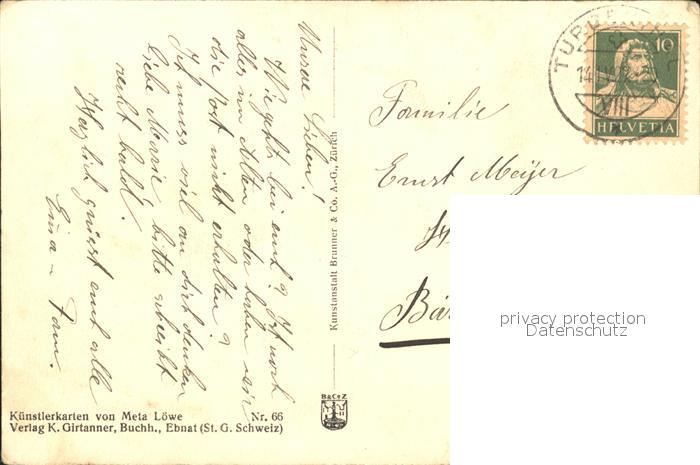 Unsere Lieben!
Wie gehts bei euch? Ist noch
alles im Alten oder haben wir
die Post nicht erhalten?
Ich muss viel an dich denken
liebe Marie bitte schreibt
recht bald!
Herzlich grüsst euch alle
Emma Fam.
Künstlerkarten von Meta Löwe Nr. 66
Verlag K. Girtanner, Buchh., Ebnat (St. G. Schweiz)
Kunstanstalt Brunner & Co. A.-G., Zürich
B&CoZ
Familie
Ernst Meyer
10
HELVETIA
XIII
privacy protection
Datenschutz